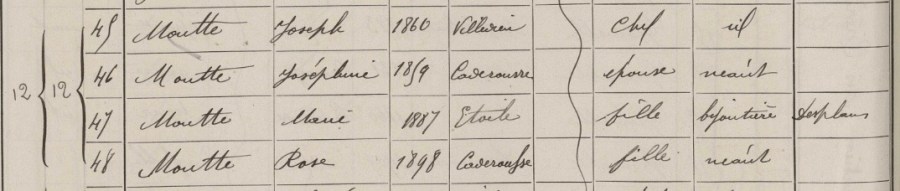 45 Moutte Joseph 1860 chef id
12 12 46 Moutte Joséphine 1859 Caderousse épouse néant
47 Moutte Marie 1887 Etoile fille bijoutière Desplans
48 Moutte Rose 1898 Caderousse fille néant